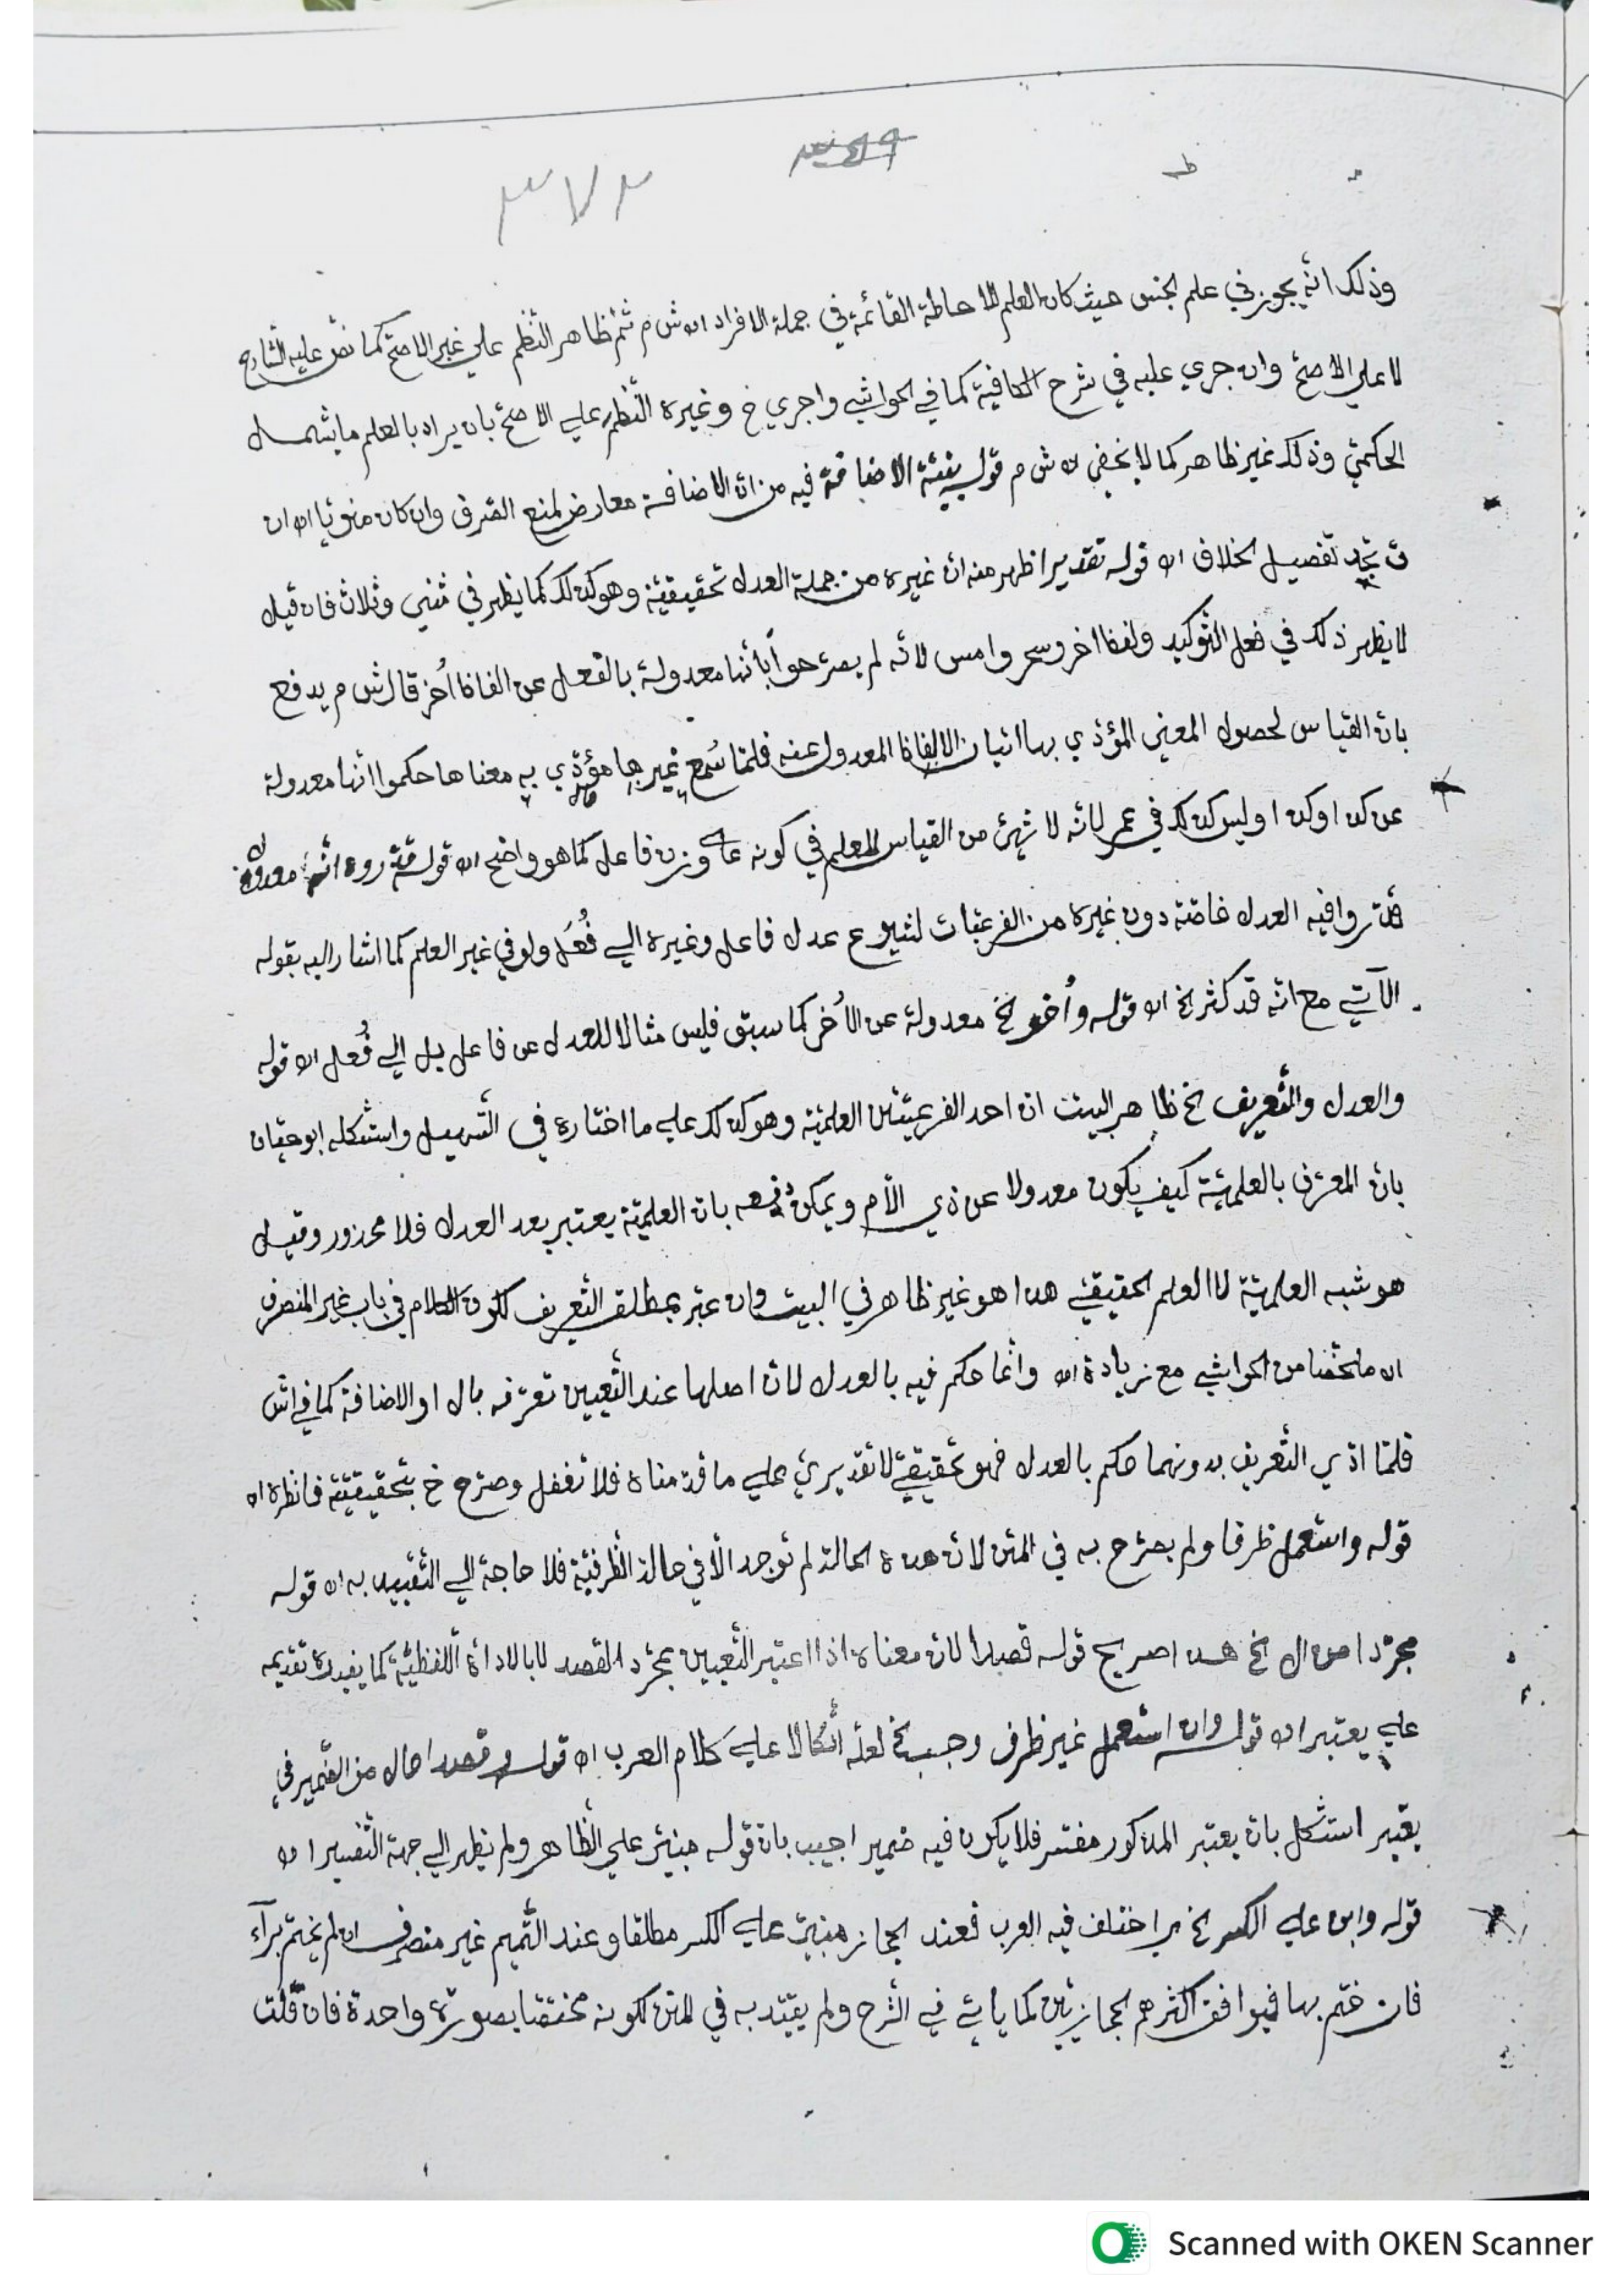 ٣٧٢
وذلك انه يجوز في علم الجنس حيث كان العلم للاحاطة القائمة في جملة الافراد اه ش م ثم ظاهر النظم علي غير الاصح كما نص عليه الشارح
لا علي الاصح وان جري عليه في شرح الكافية كما في الحواشي واجري خ وغيره النظم علي الاصح بان يراد بالعلم ما يشمل
الحكمي وذلك غير ظاهر كما لا يخفي اه ش م قوله بنية الاضافة فيه من ان الاضافة معارض لمنع الصرف وان كان منويا اه ان
تفصيل الخلاف اه قوله تقديرا ظهر منه ان غيره من جملة العدل تحقيقية وهو كذلك كما يظهر في مثني وثلاث فان قيل
لا يظهر ذلك في فعل التوكيد ولفظ اخر وسحر وامس لانه لم يصرحوا بانها معدولة بالفعل عن الفاظ أخر قال ش م يدفع
بان القياس لحصول المعني المؤدي بها اتيان الالفاظ المعدول عنه فلما سُمع غيرها مؤدي به معناها حكموا انها معدولة
عن كذا وكذا وليس كذلك في عمر لانه لا شيئ من القياس للعلم في كونه علي وزن فاعل كما هو واضح اه قوله انه معدول
فيه العدل خاصة دون غيره من الفرعيات لشيوع عدل فاعل وغيره الي فُعَل ولو في غير العلم كما اشار اليه بقوله
الآتي مع انه قد كثر الخ اه قوله وأخر الخ معدولة عن الأخر كما سبق فليس مثالا للعدل عن فاعل بل الي فُعل اه قوله
والعدل والتعريف الخ ظاهر البيت ان احد الفرعيتين العلمية وهو كذلك علي ما اختاره في التسهيل واستشكله ابو حيان
بان المعرف بالعلمية كيف يكون معدولا عن ذي الأم ويمكن دفعه بان العلمية يعتبر بعد العدل فلا محذور وقيل
هو شبه العلمية لا العلم الحقيقي هذا هو غير ظاهر في البيت وان عبر بمطلق التعريف لكون الكلام في باب غير المنصرف
اه ملخصا من الحواشي مع زيادة اه وانما حكم فيه بالعدل لان اصلها عند التعيين تعرفه بال او الاضافة كما في اش
فلما ادي التعريف بدونهما حكم بالعدل فهو تحقيقي لا تقديري علي ما قدمناه فلا تغفل وصرح خ بتحقيقية فانظره اه
قوله واستعمل ظرفا ولم يصرح به في المتن لان هذه الحالة لم توجد الا في حالة الظرفية فلا حاجة الي التقييد به اه قوله
مجردا من ال الخ هذا صريح قوله قصدا لان معناه اذا اعتبر التعيين بمجرد القصد لا بالاداة اللفظية كما يفيده تقديمه
علي يعتبر اه قوله وان استعمل غير ظرف وجب الخ لعله اتكالا علي كلام العرب اه قوله وقصدا حال من الضمير في
يعتبر استشكل بان يعتبر المذكور مفسر فلا يكون فيه ضمير اجيب بان قوله مبني علي الظاهر ولم ينظر الي جهة التفسير اه
قوله وابن علي الكسر الخ اختلف فيه العرب فعند الحجاز مبني علي الكسر مطلقا وعند التميم غير منصرف ان لم يختم براء
فان ختم بها فيوافق اكثرهم الحجازيين كما يأتي في الشرح ولم يقيد به في المتن لكونه مختصا بصورة واحدة فان قلت
Scanned with OKEN Scanner